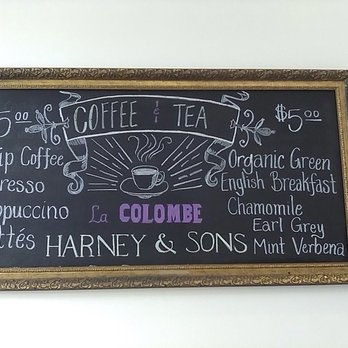 5.00 COFFEE & TEA $5.00
ip Coffee
resso
ppuccino
ttés
La COLOMBE
HARNEY & SONS
Organic Green
English Breakfast
Chamomile
Earl Grey
Mint Verbena